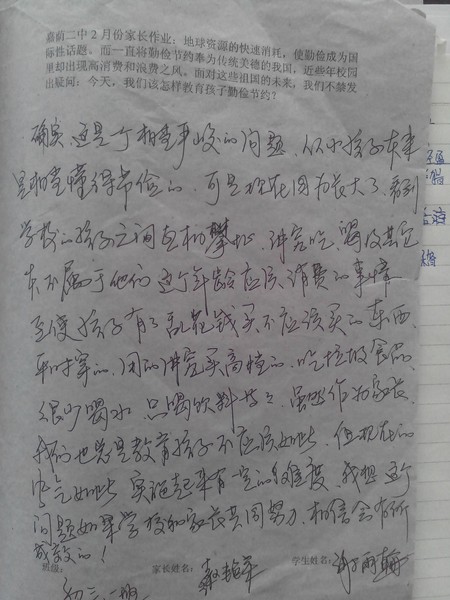 嘉荫二中2月份家长作业：地球资源的快速消耗，使勤俭成为国
际性话题、而一直将勤俭节约奉为传统美德的我国，近些年校园
里却出现高消费和浪费之风。面对这些祖国的未来，我们不禁发
出疑问：今天，我们该怎样教育孩子勤俭节约？
确实、这是个相当严峻的问题、从小孩子本来
是相当懂得节俭的、可是现在因为长大了、看到
学校的孩子之间互相攀比、讲究吃、喝及其它
本不属于他们这个年龄应该消费的事情
至使孩子有了乱花钱买不应该买的东西、
平时穿的、用的讲究买高档的、吃垃圾食品、
很少喝水、只喝饮料等等、虽然作为家长、
我们也总是教育孩子不应该如此、但现在的
风气如此、实施起来有一定的难度、我想这个
问题如果学校和家长共同努力、相信会有所
成效的！
班级： 家长姓名： 学生姓名：